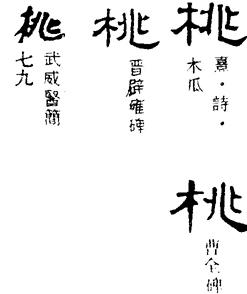 桃
熹·詩·
木瓜
桃
曹全碑
桃
晋辟雍碑
桃
武威醫簡
七九